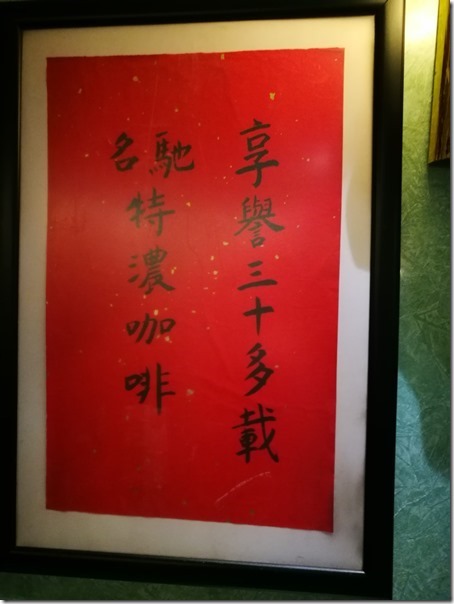 享譽三十多載
馳名特濃咖啡